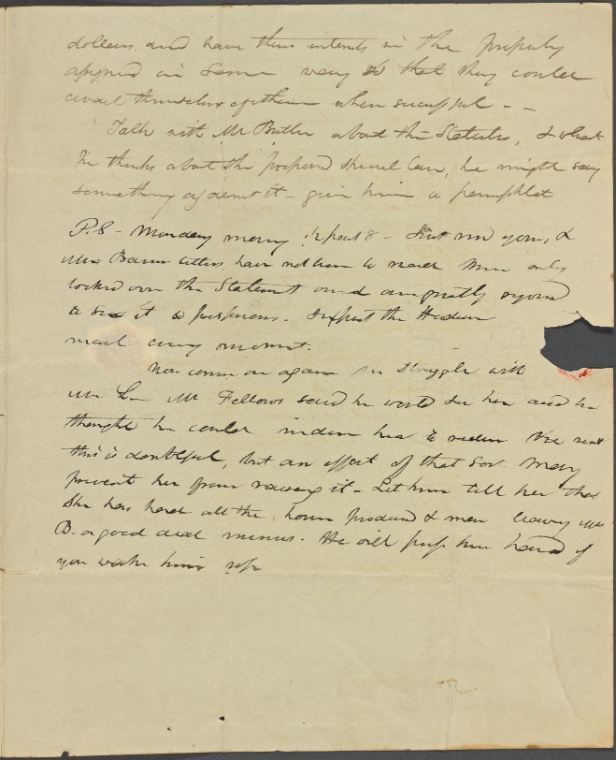 dollars, and have their interests in the property
assigned in some way so that they could
avail themselves of them when successful - -
Talk with Mr Butler about the Statutes, & what
he thinks about the proposed special law, he might say
something against it - give him a pamphlet
P.S - Monday morning ½ past 8 - Just recd yours, &
Mrs letters have not time to read them only
looked over the Statement and am greatly rejoiced
to see it so prosperous. I expect the Hudson
mail every moment.
Now comes on again the Struggle with
Mr L- Mr Fellows said he would see her and he
thought he could induce her to reduce the rent
this is doubtful, but an effort of that sort may
prevent her from raising it - Let him tell her that
she has had all the house produced & more leaving Mr
B. a good deal minus. He will press him hard if
you wake him up